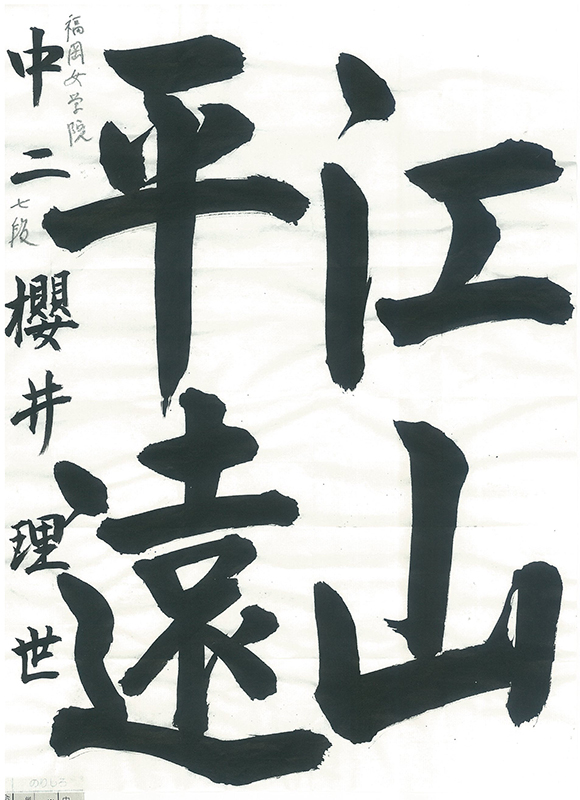 江山
平遠
福岡女学院
中二 七段 櫻井理世
のりしろ